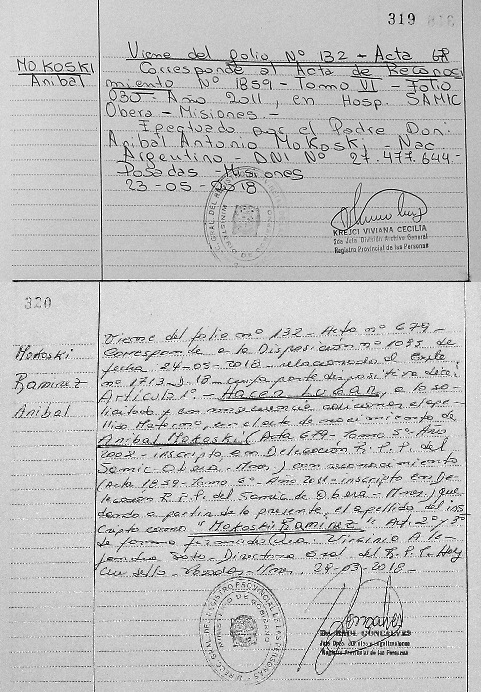 319
MOKOSKI
Anibal
Viene del folio Nº 132 - Acta 679
Corresponde al Acta de Reconoci
miento Nº 1859 - Tomo VI - Folio
030 - Año 2011, en Hosp. SAMIC
Obera - Misiones.-
Efectuado por el Padre Don:
Anibal Antonio Mokoski - Nac.
Argentino - DNI Nº 27.477.644.-
Posadas - Misiones
23-05-2018
KREJCI VIVIANA CECILIA
2da Jefa División Archivo General
Registro Provincial de las Personas
320
Mokoski
Ramirez
Anibal
Viene del folio nº 132 - Acta nº 679 -
Corresponde a la Disposición nº 1095 de
fecha 24-05-2018 - relacionada al Expte
nº 1713-D-18 - cuya parte dispositiva dice:
Artículo 1º - Hacer Lugar, a lo so-
licitado y en consecuencia adicionar el ape-
llido Materno, en el acta de nacimiento de
Anibal Mokoski (Acta 679 - Tomo 5º - Año
2002 - inscripto en Delegación R.P.P. del
Samic Obera - Mnes.) con reconocimiento
(Acta 1859 - Tomo 6º - Año 2011 - inscripto en De-
legación R.P.P. del Samic de Obera - Mnes.) que
dando a partir de lo presente, el apellido del ins
cripto como "Mokoski Ramirez". Art. 2º y 3º
de forma firmado Dra. Virginia Ale-
jandra Soto - Directora Gral. del R.P.P. Hay
un sello - Posadas - Mnes. 29-05-2018 -
Dr. RAUL GONCALVES
Registro Provincial de las Personas